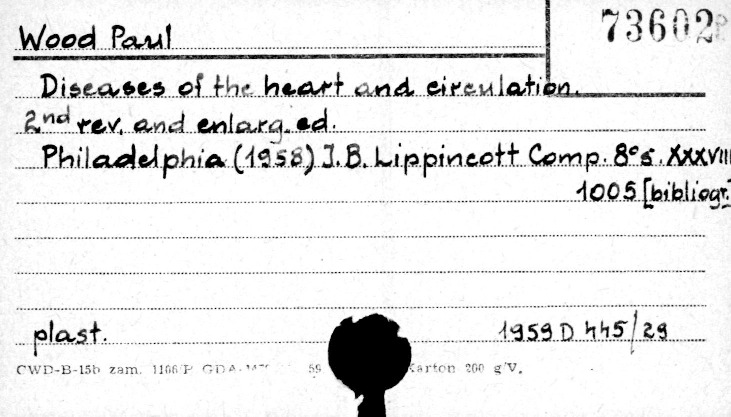 Wood Paul
73602
Diseases of the heart and circulation.
2nd rev. and enlarg. ed.
Philadelphia (1958) J.B. Lippincott Comp. 8° s. XXXVIII
1005 [bibliogr.]
plast.
1959 D 445/29
CWD-B-15b zam. 1166/P GDA 59 Karton 200 g/V.